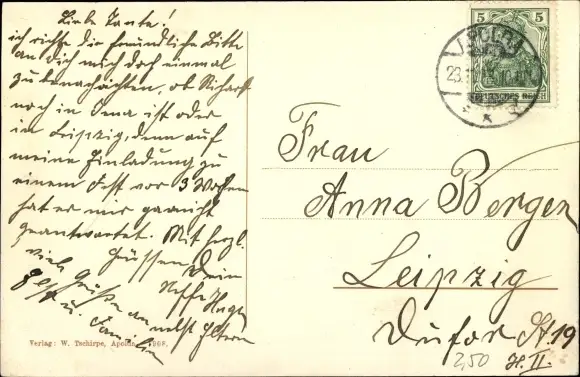 Liebe Tante!
ich richte die freundliche Bitte
an Dich mich doch einmal
zu benachrichten, ob Richard
noch in Jena ist oder
in Leipzig, denn auf
meine Einladung zu
einem Fest vor 3 Wochen
hat er mir garnicht
geantwortet. Mit herzl.
Grüssen Dein
Neffe Hugo
viele Grüße an nebst Eltern
u. Familie
Verlag: W. Tschirpe, Apolda. 1908.
5 5
DEUTSCHES REICH
APOLDA
Frau
Anna Berger
Leipzig
Dufor St 19
H. II.
2,50